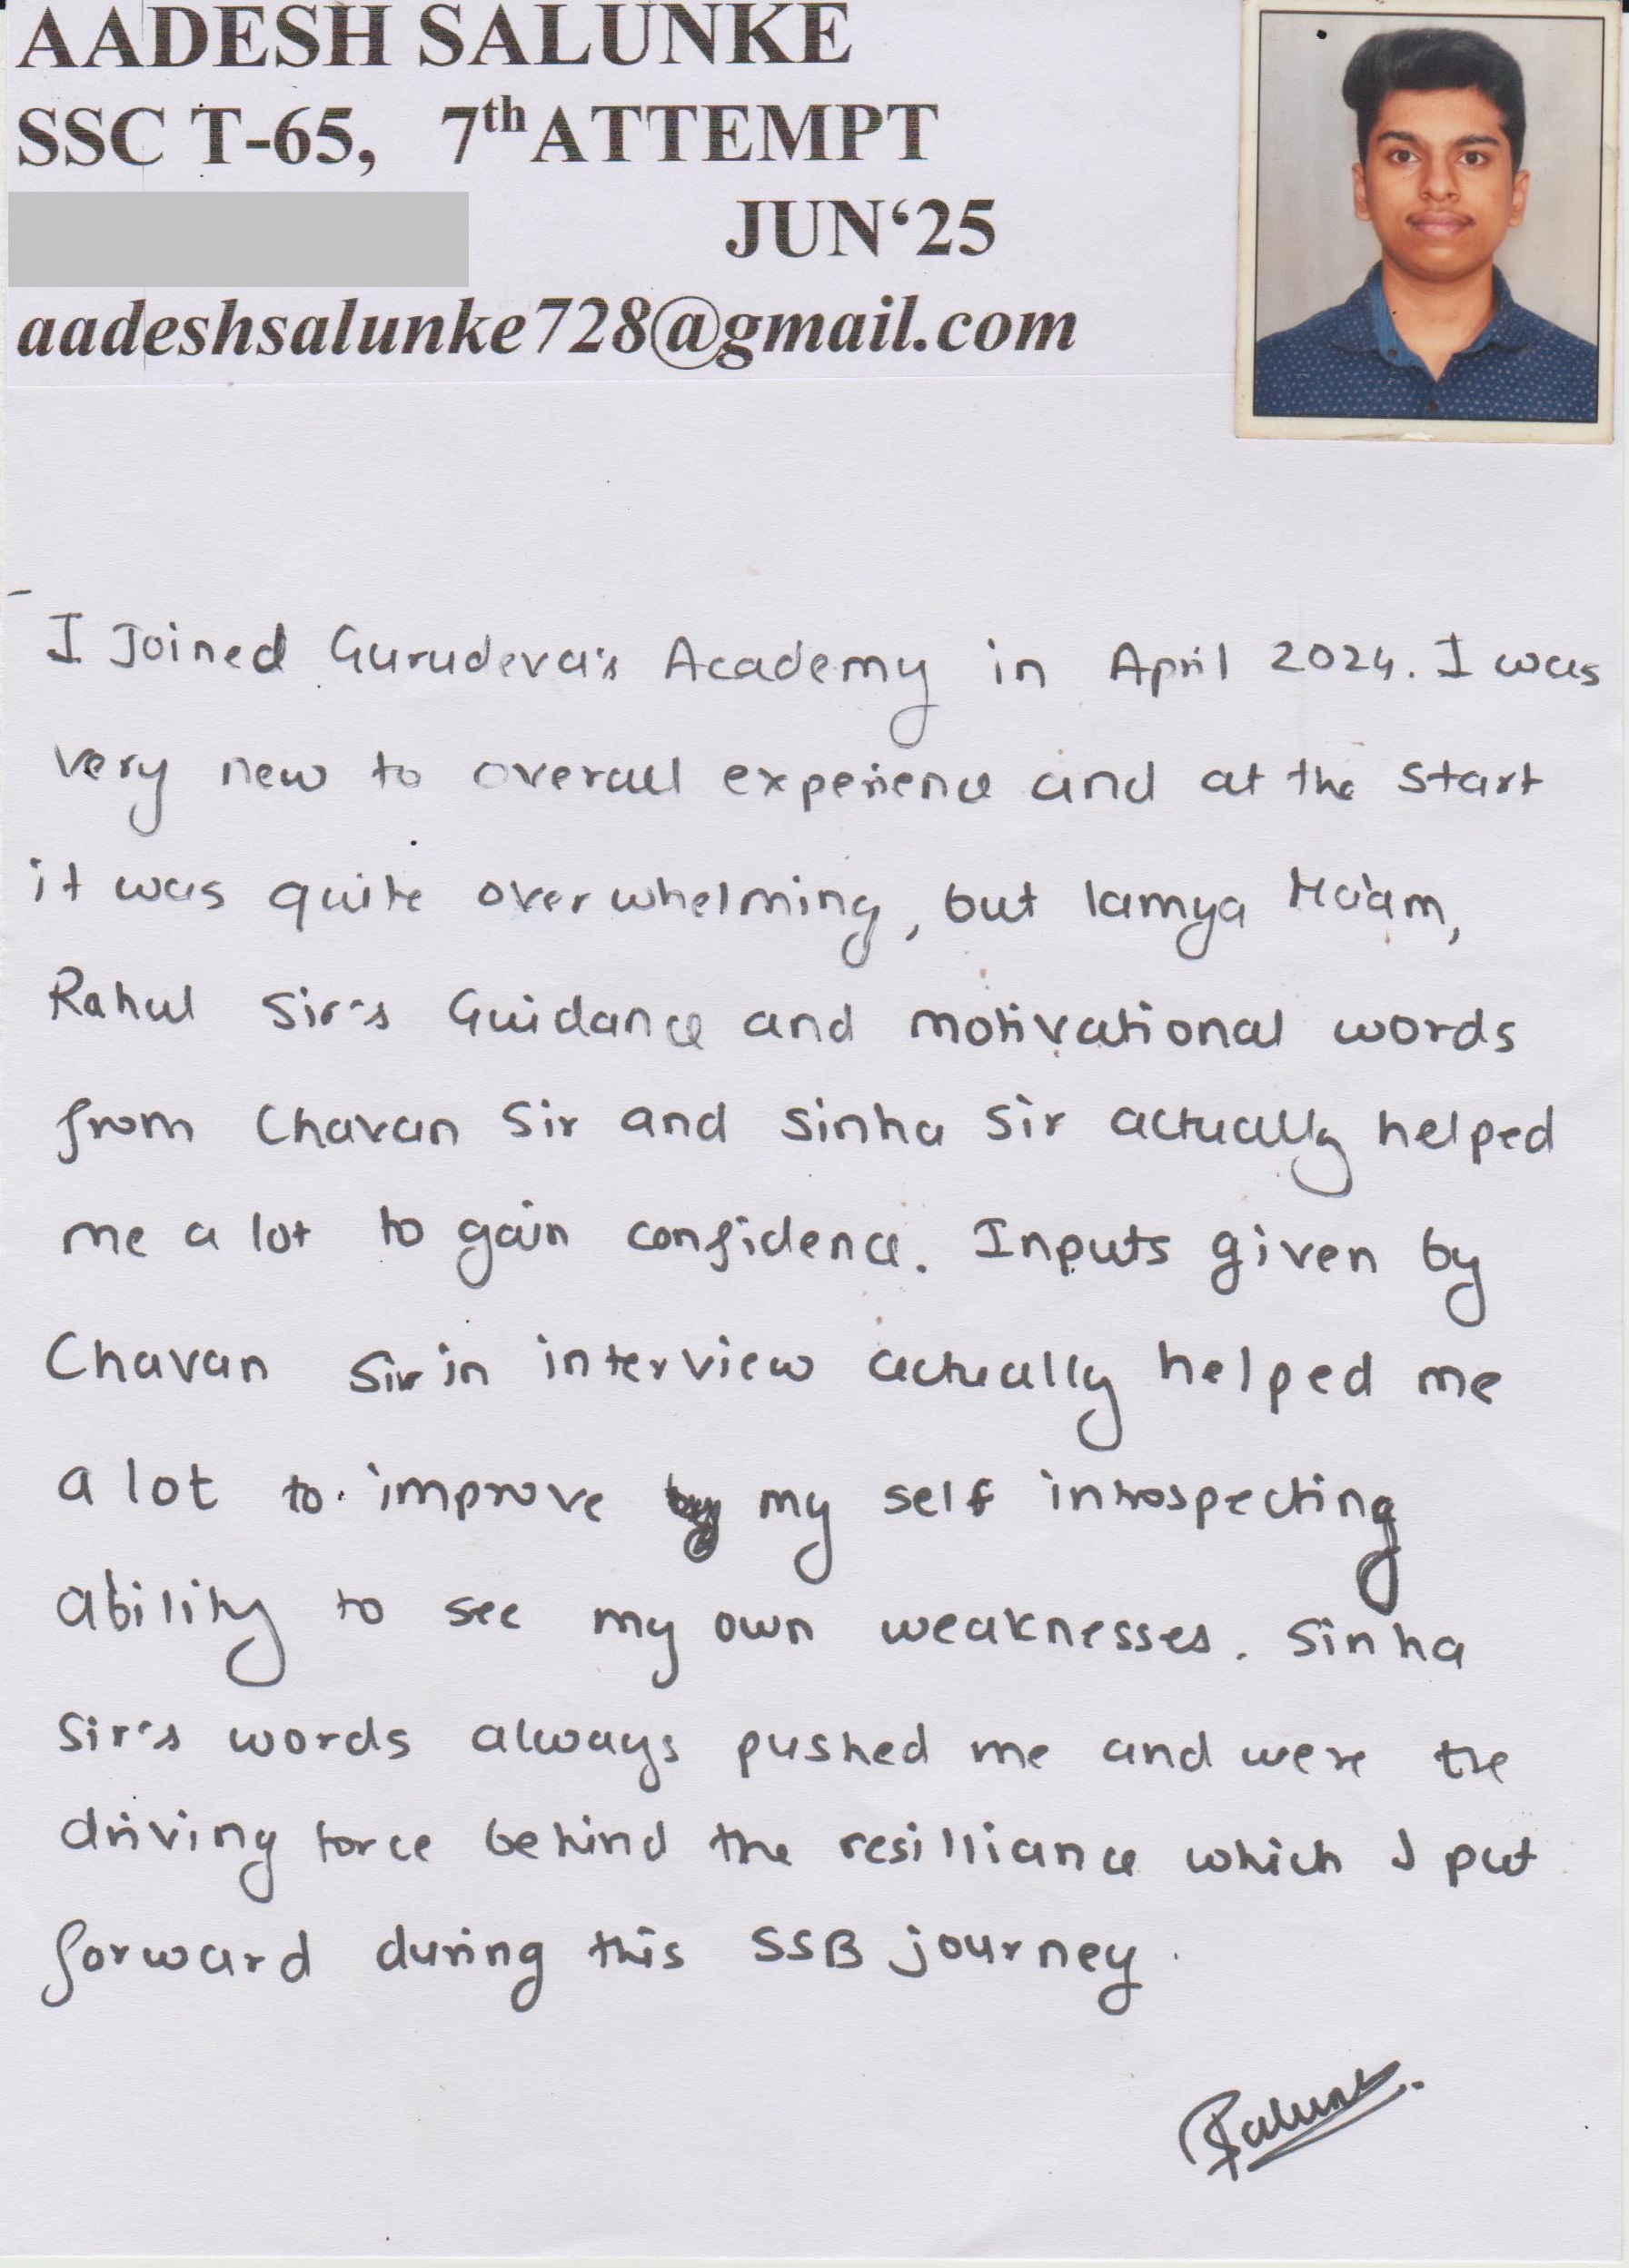 AADESH SALUNKE
SSC T-65, 7th ATTEMPT
JUN‘25
aadeshsalunke728@gmail.com
I Joined Gurudeva's Academy in April 2024. I was
very new to overall experience and at the start
it was quite overwhelming, but lamya Ma'am,
Rahul Sir's Guidance and motivational words
from Chavan Sir and Sinha Sir actually helped
me a lot to gain confidence. Inputs given by
Chavan Sir in interview actually helped me
a lot to improve my self introspecting
ability to see my own weaknesses. Sinha
Sir's words always pushed me and were the
driving force behind the resilliance which I put
forward during this SSB journey.